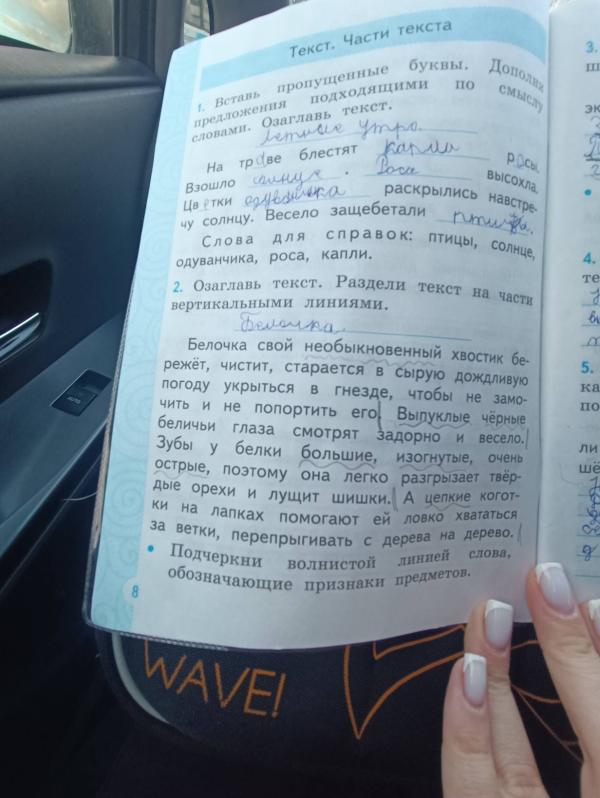 Текст. Части текста
1. Вставь пропущенные буквы. Дополни
предложения подходящими по смыслу
словами. Озаглавь текст.
Летнее утро.
На траве блестят капли росы.
Взошло солнце. Роса высохла.
Цветки одуванчика раскрылись навстре-
чу солнцу. Весело защебетали птицы.
Слова для справок: птицы, солнце,
одуванчика, роса, капли.
2. Озаглавь текст. Раздели текст на части
вертикальными линиями.
Белочка.
Белочка свой необыкновенный хвостик бе-
режёт, чистит, старается в сырую дождливую
погоду укрыться в гнезде, чтобы не замо-
чить и не попортить его. Выпуклые чёрные
беличьи глаза смотрят задорно и весело.
Зубы у белки большие, изогнутые, очень
острые, поэтому она легко разгрызает твёр-
дые орехи и лущит шишки. А цепкие когот-
ки на лапках помогают ей ловко хвататься
за ветки, перепрыгивать с дерева на дерево.
• Подчеркни волнистой линией слова,
обозначающие признаки предметов.
8
WAVE!
3.
ш
4.
те
5.
ка
по
ли
шё